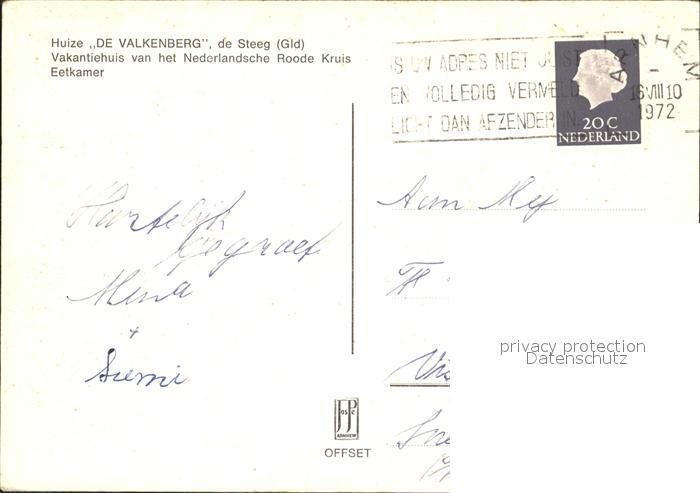 Huize „DE VALKENBERG”, de Steeg (Gld)
Vakantiehuis van het Nederlandsche Roode Kruis
Eetkamer
IS UW ADRES NIET JUIST
EN VOLLEDIG VERMELD
LICHT DAN AFZENDER IN.
ARNHEM
16 VIII 10
1972
20 C
NEDERLAND
Hartelijk
gegroet
Mina
+
Siemi
Aan Mej
privacy protection
Datenschutz
JosPé
ARNHEM
OFFSET